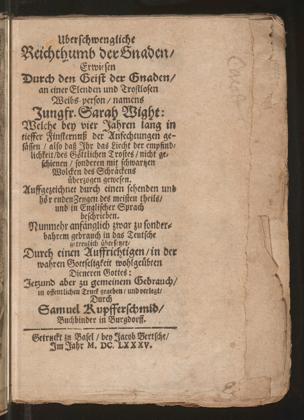 Uberschwengliche
Reichthumb der Gnaden/
Erwiesen
Durch den Geist der Gnaden/
an einer Elenden und Trostlosen
Weibs-person/ namens
Jungfr. Sarah Wight:
Welche bey vier Jahren lang in
tieffer Finsternuß der Anfechtungen ge-
sässen/ also daß Ihr das Liecht der empfind-
lichkeit/ des Göttlichen Trostes/ nicht ge-
schienen/ sonderen mit schwartzen
Wolcken des Schräckens
überzogen gewesen.
Auffgezeichnet durch einen sehenden und
hörenden Zeugen des meisten theils/
und in Englischer Sprach
beschrieben.
Nunmehr anfänglich zwar zu sonder-
bahrem gebrauch in das Teutsche
getreulich übersetzet/
Durch einen Auffrichtigen/ in der
wahren Gottseligkeit wohlgeübten
Dieneren Gottes:
Jetzund aber zu gemeinem Gebrauch/
in offentlichen Truck gegeben/ und verlegt/
Durch
Samuel Kupfferschmid/
Buchbinder in Burgdorff.
Getruckt zu Basel/ bey Jacob Bertsche/
Im Jahr M. DC. LXXXV.